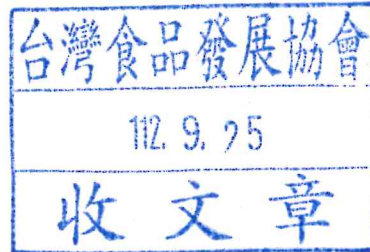 台灣食品發展協會
112. 9. 25
收文章